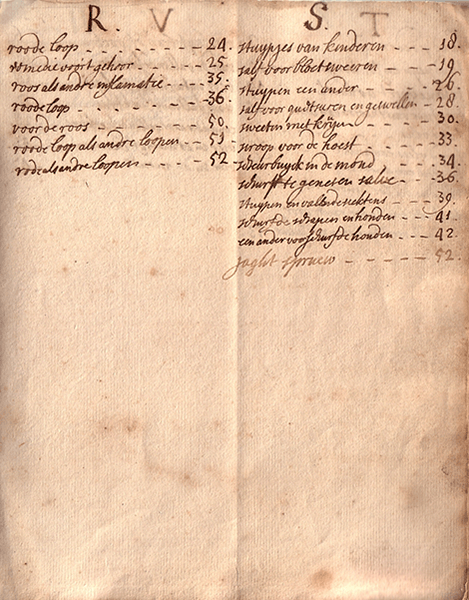 R. V S. T
roode loop - - - - - - - 24.
remedie voort gehoor - - - 25
roos als andre inflamatie - - 35.
roode loop - - - - - - - 36
voor de roos - - - - - - 50.
roode loop als andre loopen - 51
rode als andre loopen - - - 52
stuypjes van kinderen - - - 18.
salf voor bloetsweeren - - - 19
stuypen een ander - - - - 26.
salf voor quetsuren en geswellen - 28.
30.
siroop voor de hoest - - - 33
scheurbuyck in de mond - - 34.
schurft te genesen salve - - 36.
stuypen en vallende siektens - - 39.
schurfde schapen en honden - - - 41
een ander voor schurfde honden - - - 42.
spruew - - - - - 52.